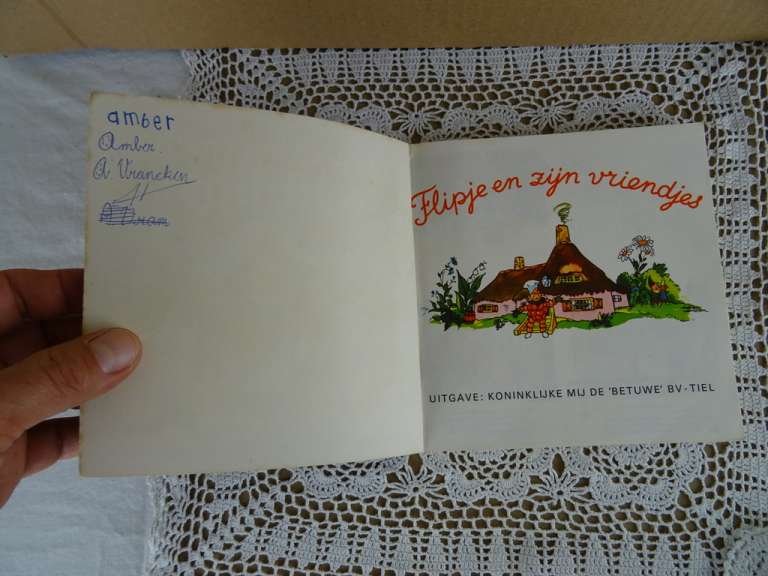 amber
Amber.
A. Vrancken
Flipje en zijn vriendjes
UITGAVE: KONINKLIJKE MIJ DE 'BETUWE' BV-TIEL